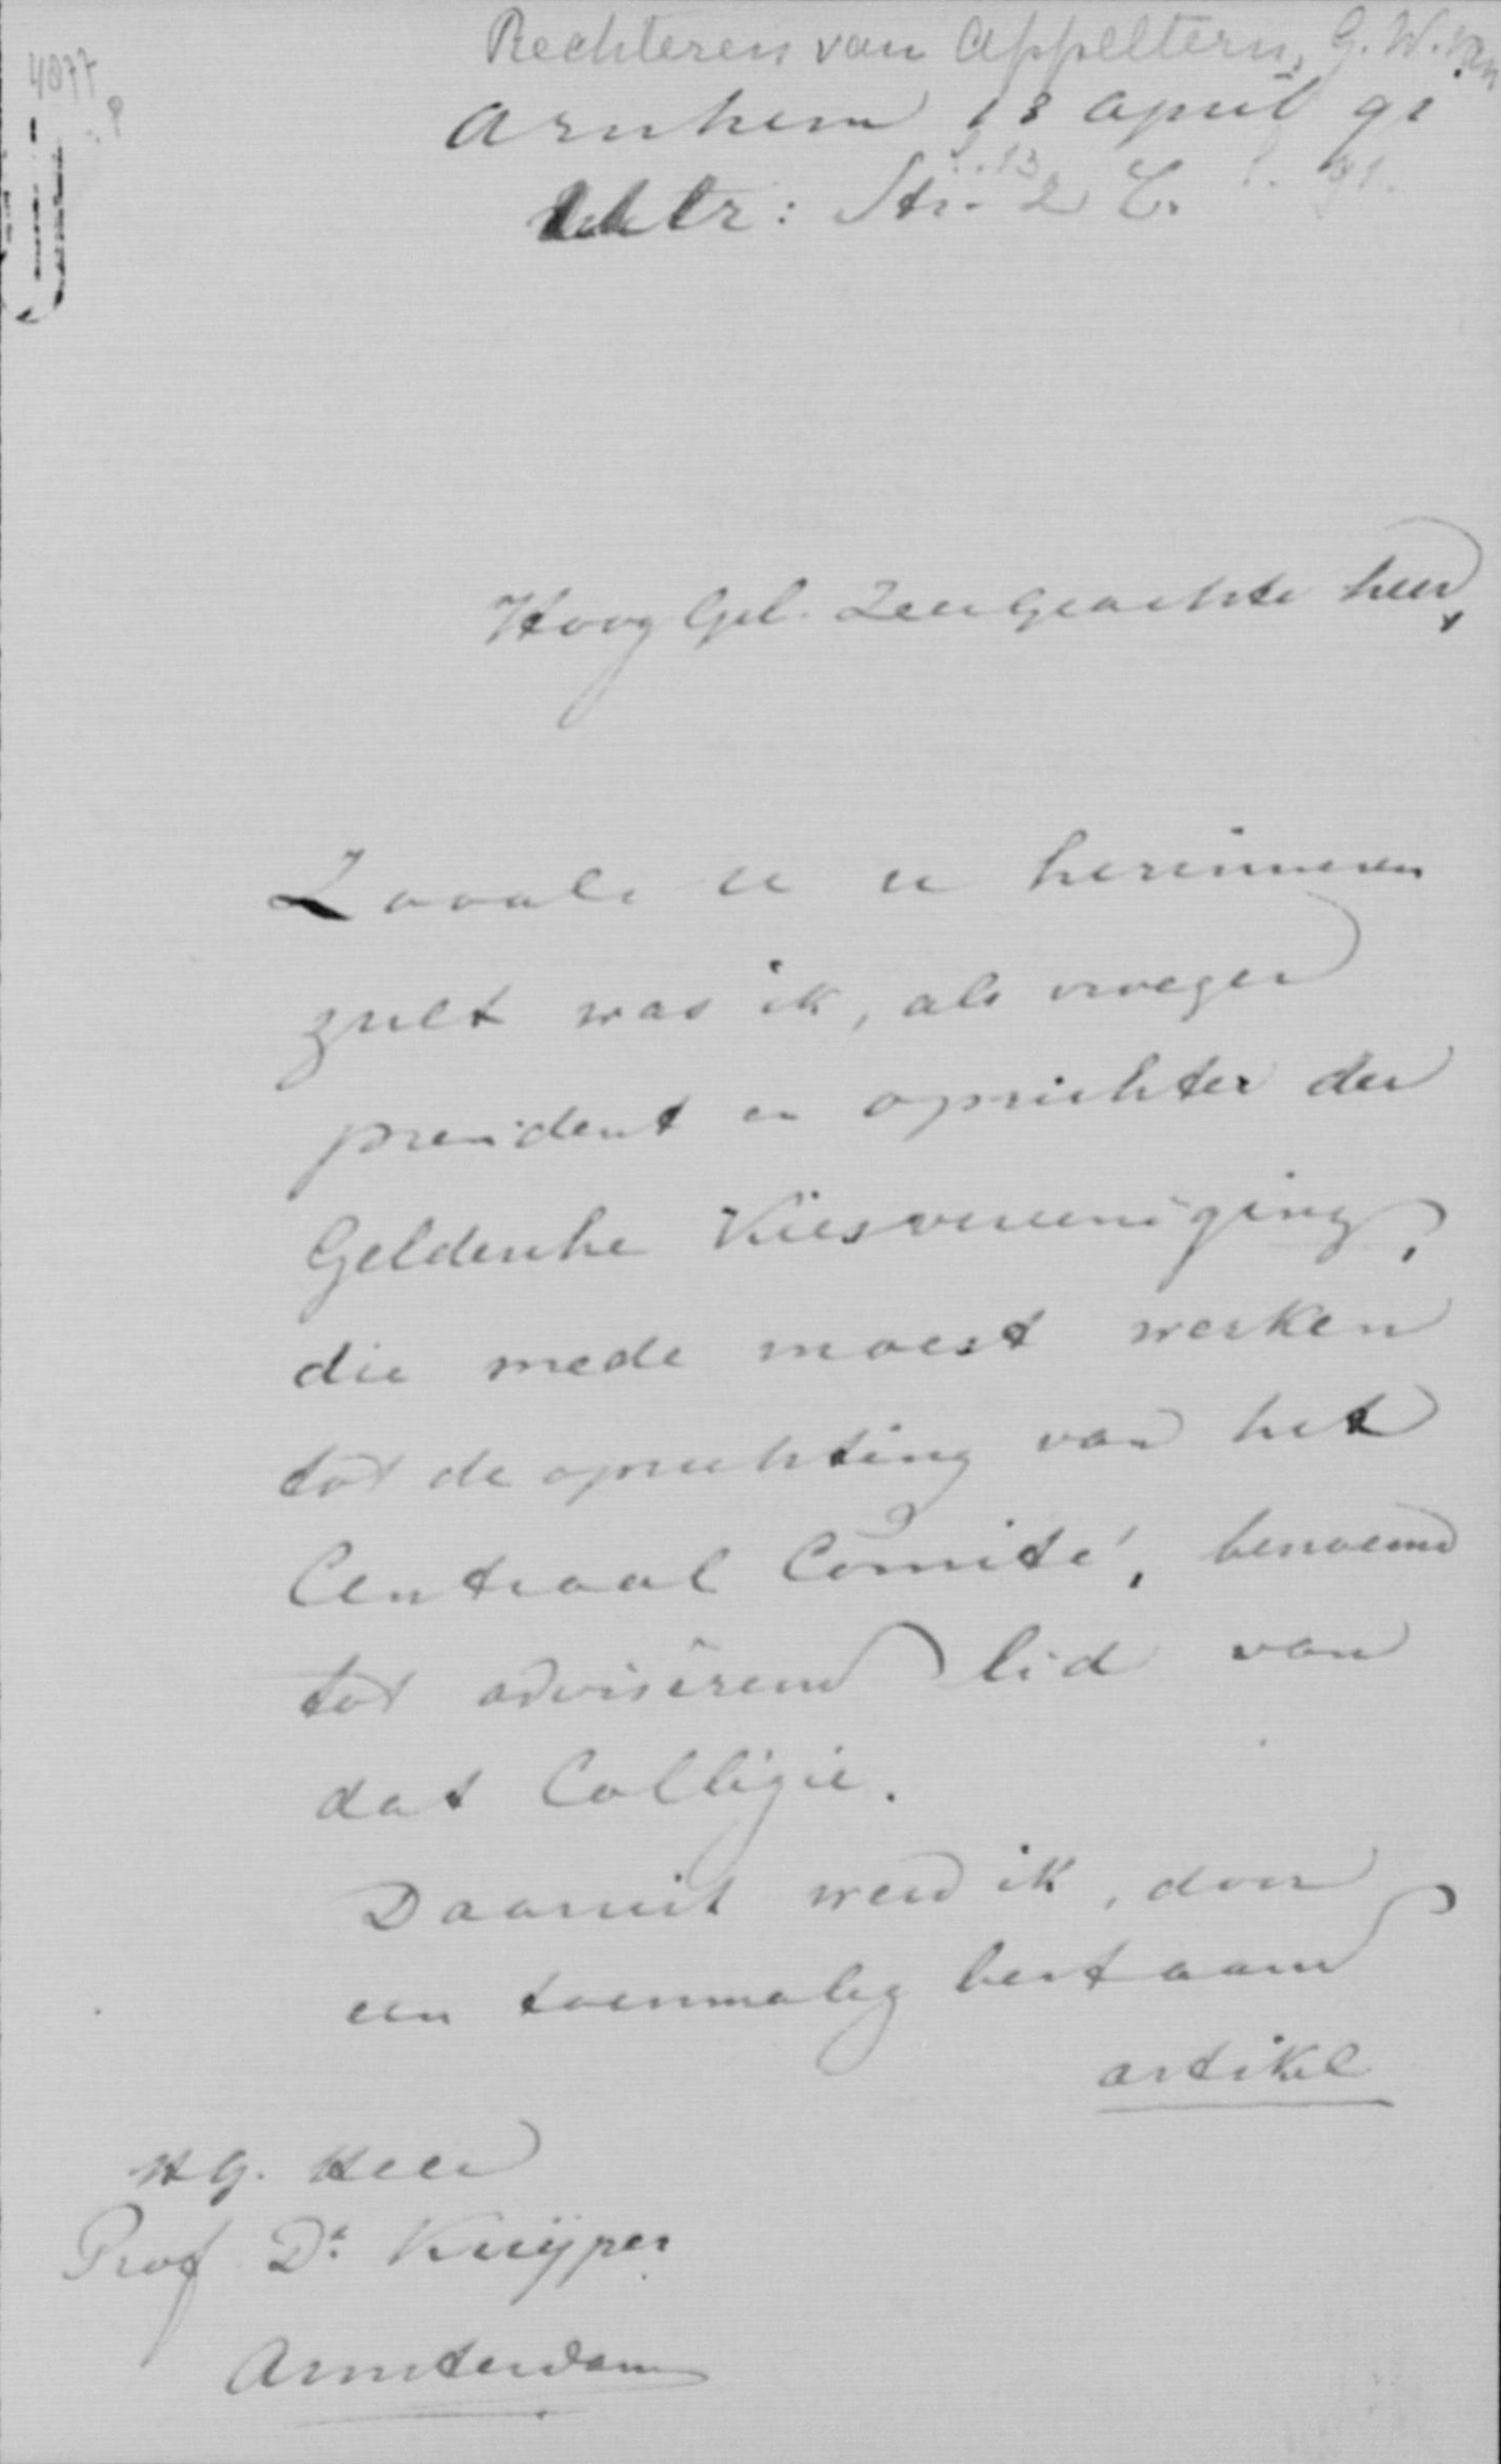 4877
Rechteren van Appeltern, G. W. van
Arnhem 13 april 91
Utr: Str. 2 C.
Hoog Gel. Zeer Geachte heer,
Zooals u u herinneren
zult was ik, als vroeger
president en oprichter der
Geldersche Kiesvereeniging,
die mede moest werken
tot de oprichting van het
Centraal Comité, benoemd
tot adviserend lid van
dat Collegie.
Daaruit werd ik, door
een toenmalig bestaand
artikel
HG. Heer
Prof Dr. Kuijper
Amsterdam